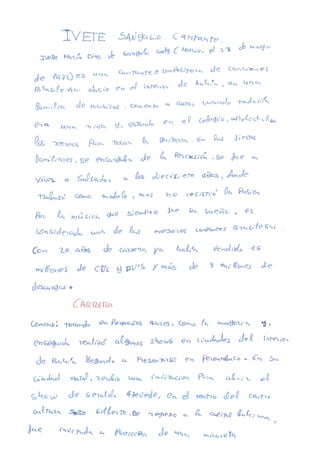 IVETE SANGALO Cantante.
Ivete María Dias de Sangalo cady (Nació, el 27 de mayo
de 1972) es una cantante y compositora de canciones
Brasileña. Nació en el interior de Bahía, en una
familia de músicos. Comenzó a cantar cuando todavía
era una niña y, estando en el colegio, aprovechaba
los recreos para tocar la guitarra. En las fiestas
familiares, se encargaba de la percusión. Se fue a
vivir a Salvador a los diecisiete años, donde
trabajó como modelo, mas no resistió la pasión
por la música, que siempre fue su sueño. es
considerada una de las mayores cantantes brasileñas.
Con 20 años de carrera ya había vendido 15
millones de CDs y DVDS y más de 5 millones de
descargas.
CARRERA
Comenzó tocando en pequeños bares, como la mayoría y,
enseguida realizó algunos shows en ciudades del interior
de Bahía llegando a presentarse en Pernambuco. En su
ciudad natal, recibió una invitación para abrir el
show de Geraldo Azevedo, en el teatro del centro
cultura João Gilberto. De regreso a la capital bahiana,
fue invitada a participar de una micareta